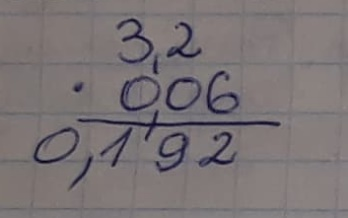 3,2
· 0,06
0,192